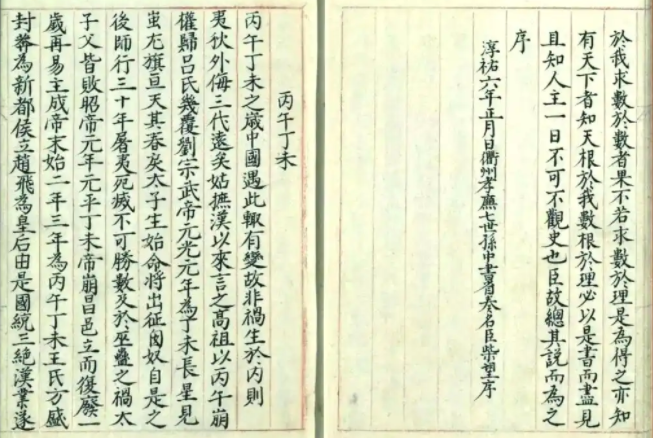 於我求數於數者果不若求數於理是為得之亦知
有天下者知天根於我數根於理必以是書而盡見
且知人主一日不可不觀史也臣故總其說而為之
序
淳祐六年正月日衢州孝廉七世孫中書省奏名臣柴望序
丙午丁未
丙午丁未之歲中國遇此輒有變故非禍生於內則
夷狄外侮三代遠矣姑撫漢以來言之高祖以丙午崩
權歸呂氏幾覆劉宗武帝元光元年為丁未長星見
蚩尤旗亘天其春戾太子生始命將出征匈奴自是之
後師行三十年屠夷死滅不可勝數及於巫蠱之禍太
子父皆敗昭帝元年元平丁未帝崩昌邑立而復廢一
歲再易主成帝末始二年三年為丙午丁未王氏方盛
封莽為新都侯立趙飛為皇后由是國統三絕漢業遂